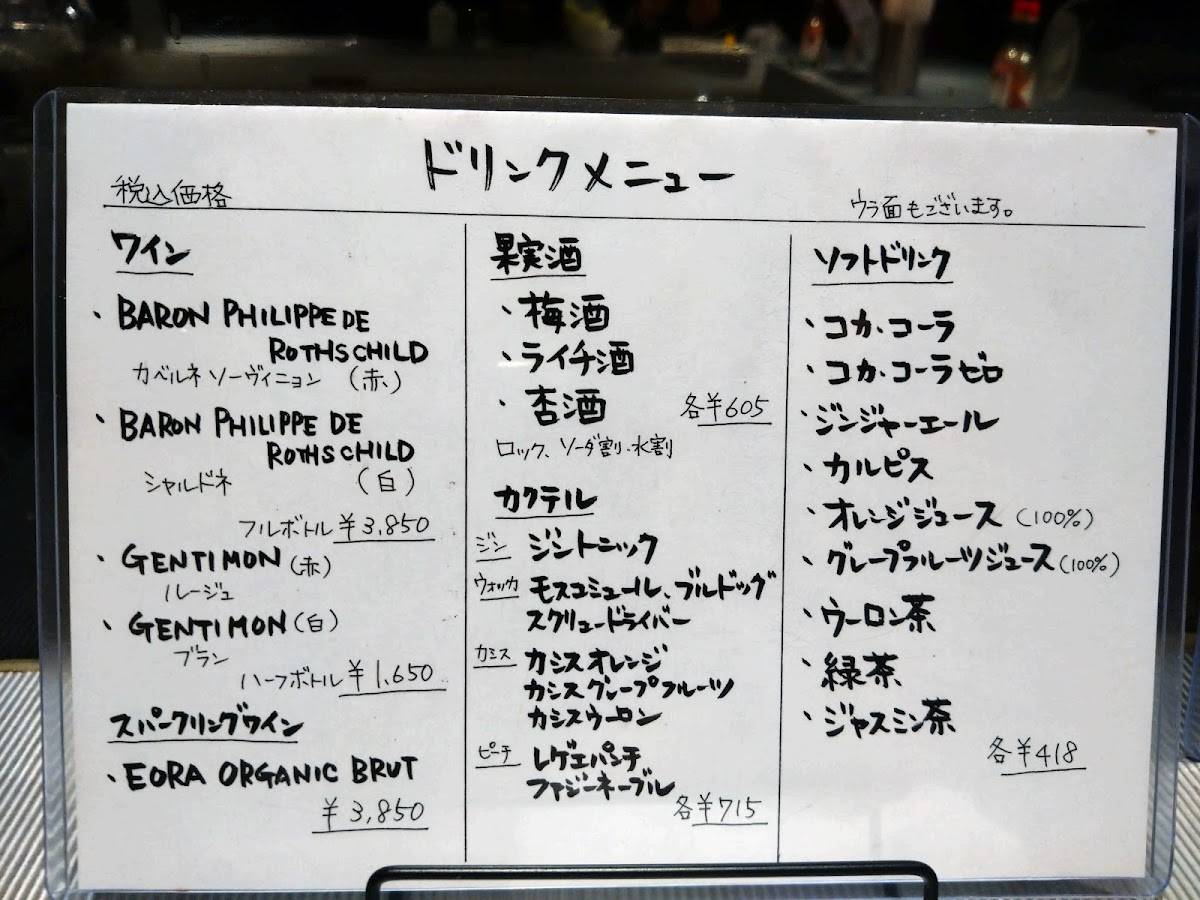 ドリンクメニュー
税込価格
ウラ面もございます。
ワイン
・BARON PHILIPPE DE
ROTHSCHILD
カベルネ ソーヴィニョン (赤)
・BARON PHILIPPE DE
ROTHSCHILD
シャルドネ (白)
フルボトル ¥3,850
・GENTIMON (赤)
ルージュ
・GENTIMON (白)
ブラン
ハーフボトル ¥1,650
スパークリングワイン
・EORA ORGANIC BRUT
¥3,850
果実酒
・梅酒
・ライチ酒
・杏酒 各¥605
ロック、ソーダ割・水割
カクテル
ジン ジントニック
ウォッカ モスコミュール、ブルドッグ
スクリュードライバー
カシス カシスオレンジ
カシスグレープフルーツ
カシスウーロン
ピーチ レゲエパンチ
ファジーネーブル
各¥715
ソフトドリンク
・コカ・コーラ
・コカ・コーラゼロ
・ジンジャーエール
・カルピス
・オレンジジュース (100%)
・グレープフルーツジュース (100%)
・ウーロン茶
・緑茶
・ジャスミン茶
各¥418